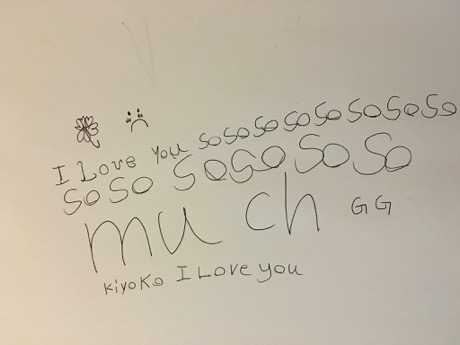 I Love you So So So So So So So So
So So So So So So
much GG
Kiyoko I Love you